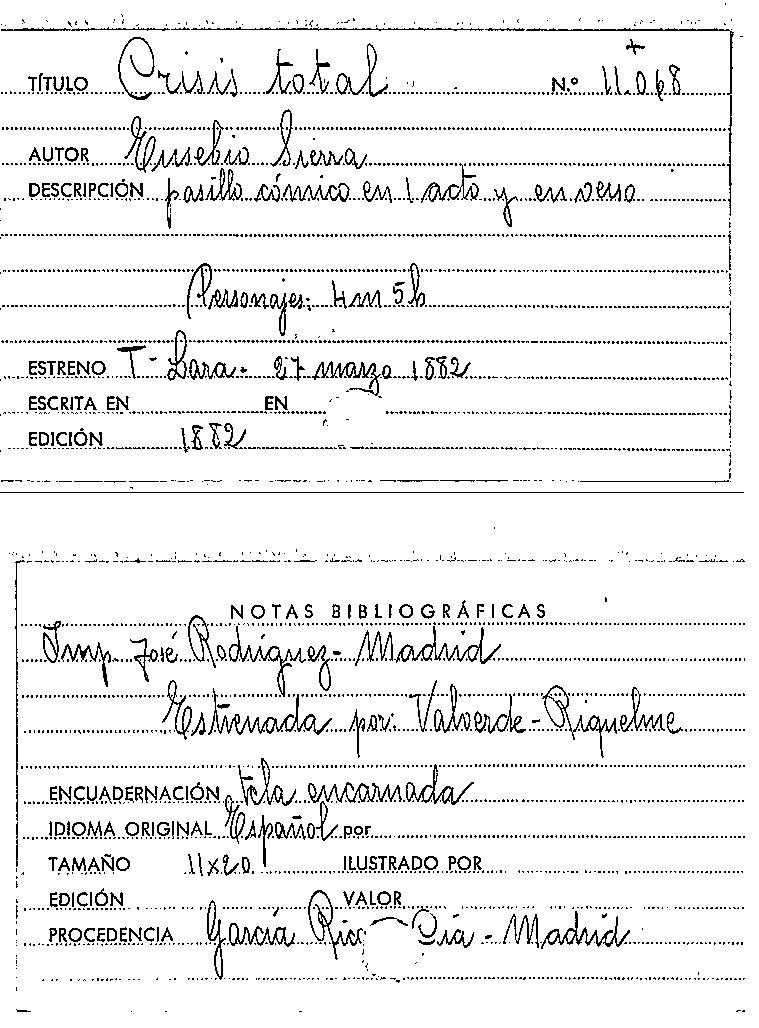 +
TÍTULO Crisis total N.º 11.068
AUTOR Eusebio Sierra
DESCRIPCIÓN pasillo cómico en 1 acto y en verso
Personajes: 4m 5h
ESTRENO T- Lara. 27 marzo 1882
ESCRITA EN EN
EDICIÓN 1882
NOTAS BIBLIOGRÁFICAS
Imp. José Rodríguez- Madrid
Estrenada por: Valverde-Riquelme
ENCUADERNACIÓN tela encarnada
IDIOMA ORIGINAL Español por
TAMAÑO 11x20 ILUSTRADO POR
EDICIÓN VALOR
PROCEDENCIA García Rico Cía - Madrid